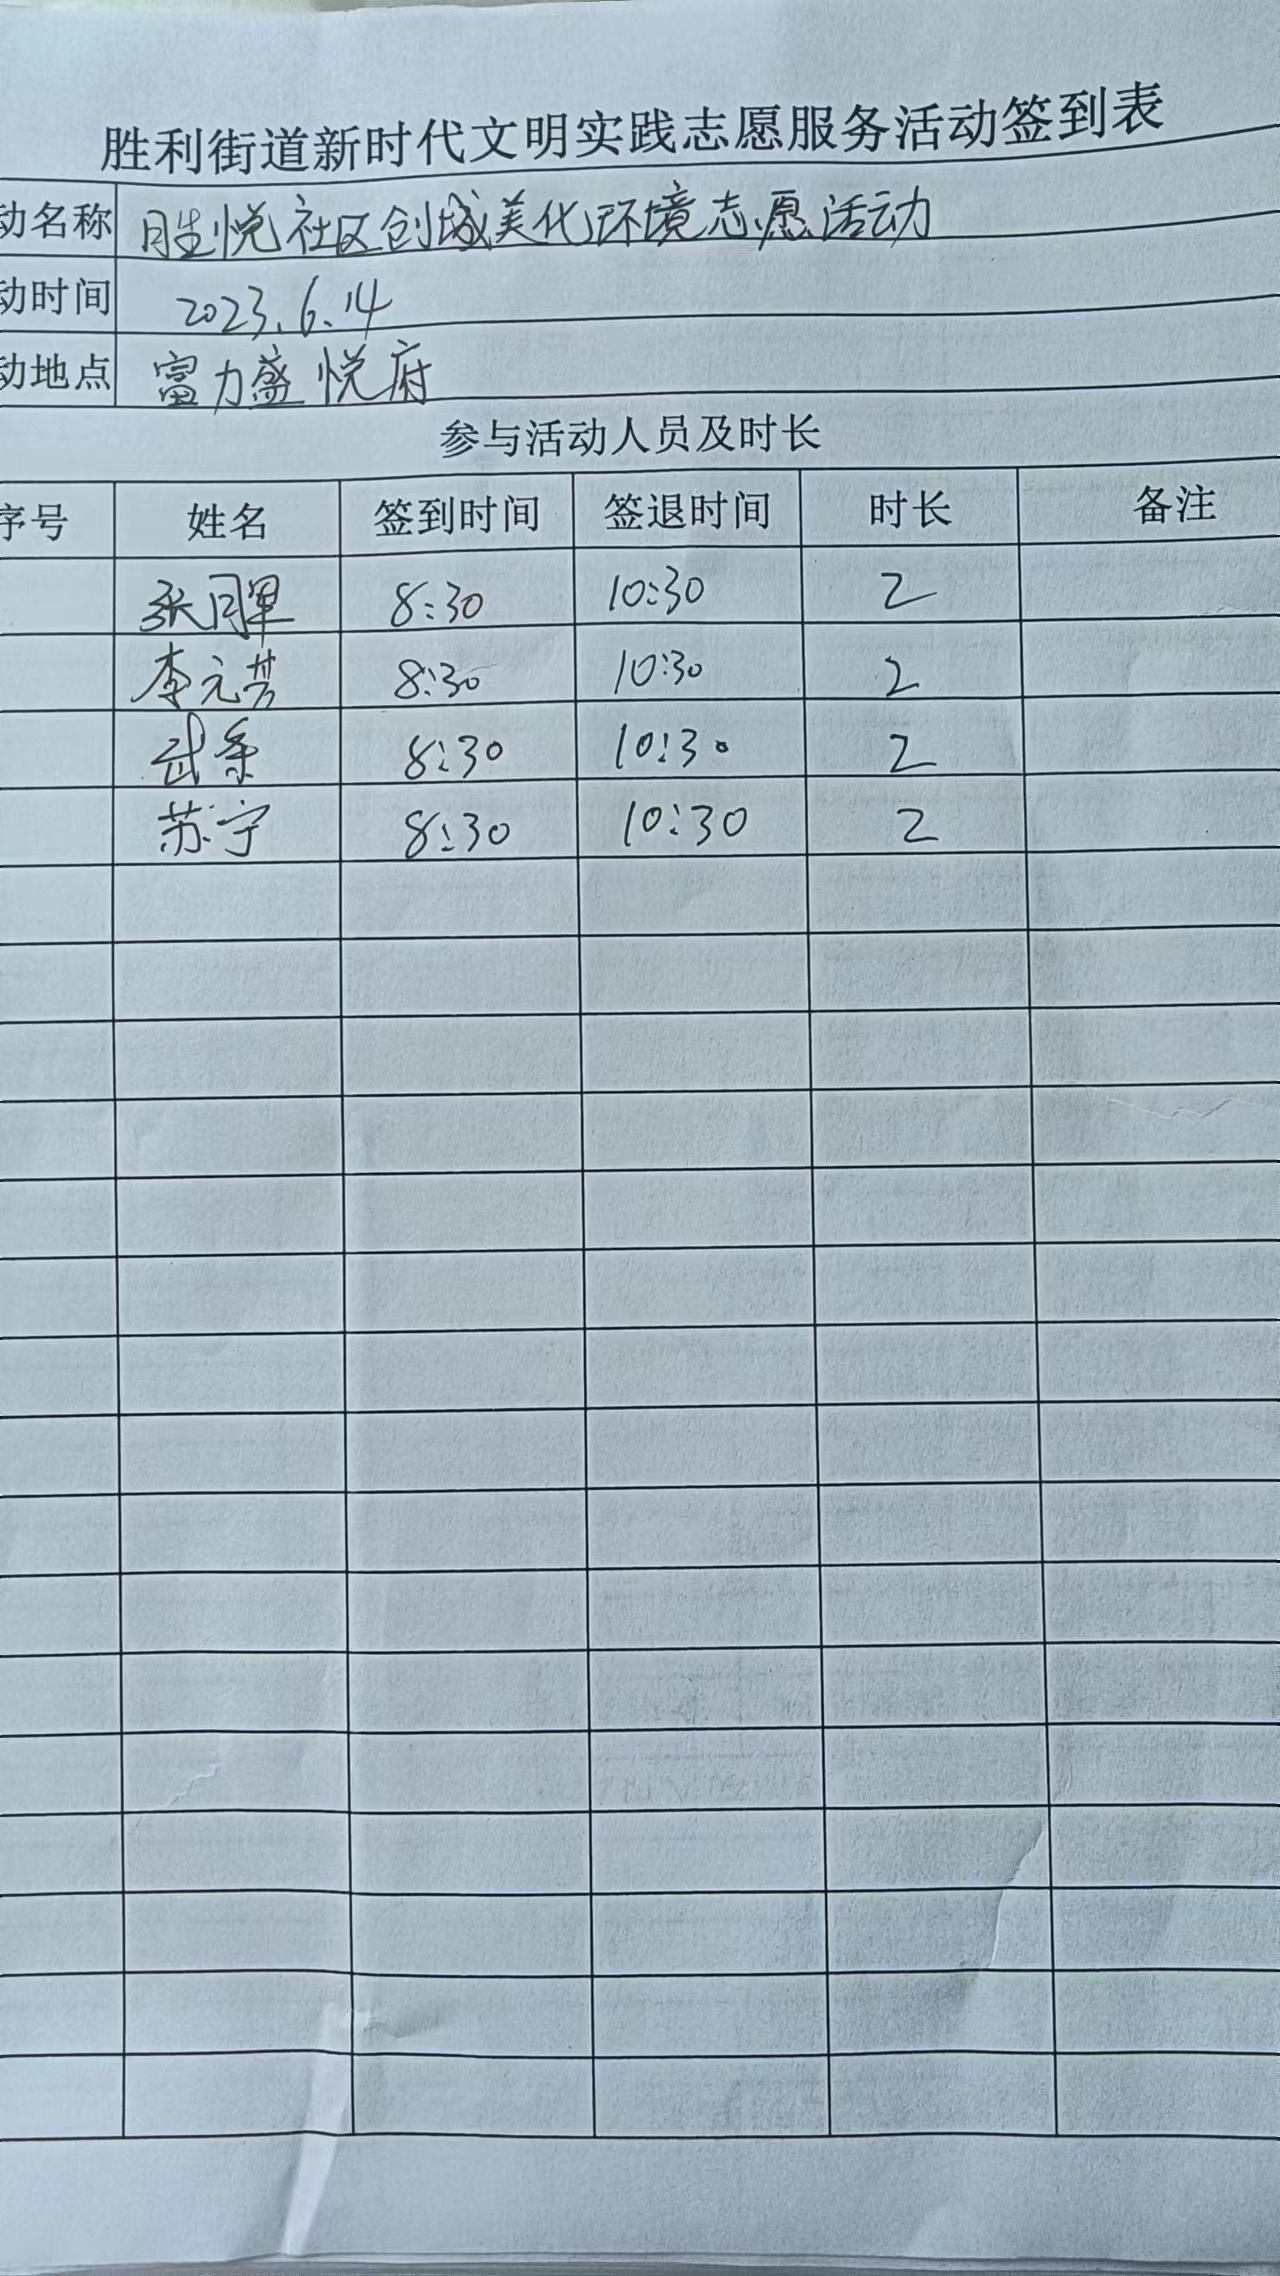 胜利街道新时代文明实践志愿服务活动签到表
动名称 胜悦社区创城美化环境志愿活动
动时间 2023.6.14
动地点 富力盛悦府
参与活动人员及时长
序号 姓名 签到时间 签退时间 时长 备注
8:30 10:30 2
李元芳 8:30 10:30 2
武 8:30 10:30 2
苏宁 8:30 10:30 2